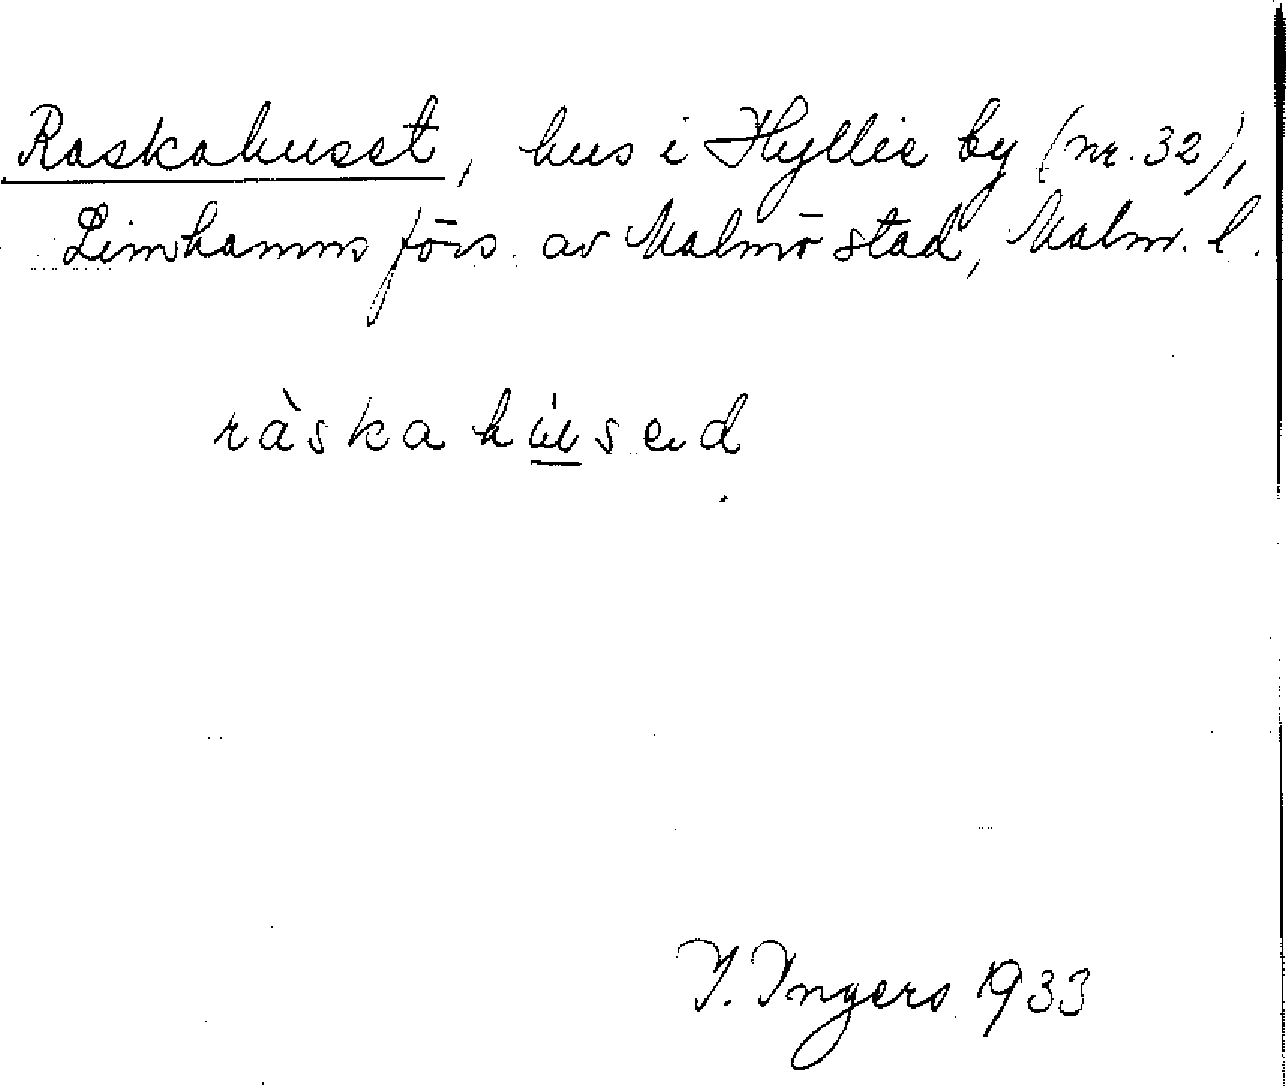 Raskahuset, hus i Hyllie by (nr. 32),
Limhamns förs. av Malmö stad, Malm. l.
ràskahúsəd
I. Ingers 1933